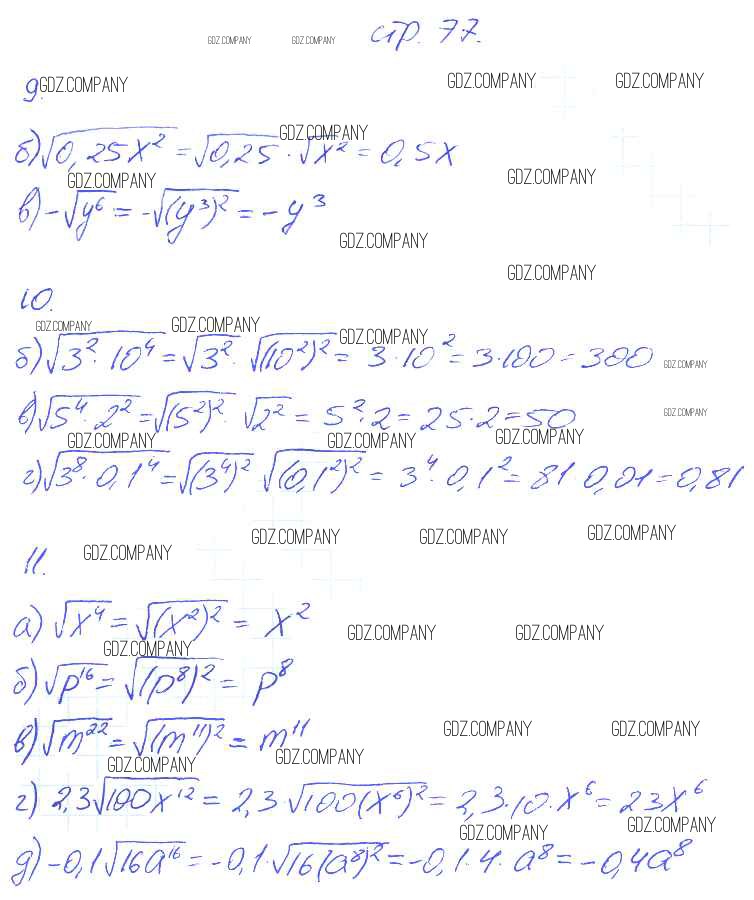 GDZ.COMPANY GDZ.COMPANY стр. 77.
9. GDZ.COMPANY GDZ.COMPANY GDZ.COMPANY
GDZ.COMPANY
б) √0,25x² = √0,25 · √x² = 0,5x
GDZ.COMPANY GDZ.COMPANY
в) -√y⁶ = -√(y³)² = -y³
GDZ.COMPANY
GDZ.COMPANY
10.
GDZ.COMPANY GDZ.COMPANY GDZ.COMPANY
б) √3² · 10⁴ = √3² · √(10²)² = 3 · 10² = 3 · 100 = 300 GDZ.COMPANY
в) √5⁴ · 2² = √(5²)² · √2² = 5² · 2 = 25 · 2 = 50 GDZ.COMPANY
GDZ.COMPANY GDZ.COMPANY GDZ.COMPANY
г) √3⁸ · 0,1⁴ = √(3⁴)² √(0,1²)² = 3⁴ · 0,1² = 81 0,01 = 0,81
GDZ.COMPANY GDZ.COMPANY GDZ.COMPANY
11. GDZ.COMPANY
а) √x⁴ = √(x²)² = x² GDZ.COMPANY GDZ.COMPANY
GDZ.COMPANY
б) √p¹⁶ = √(p⁸)² = p⁸
в) √m²² = √(m¹¹)² = m¹¹ GDZ.COMPANY GDZ.COMPANY
GDZ.COMPANY GDZ.COMPANY
г) 2,3√100x¹² = 2,3 · √100(x⁶)² = 2,3 · 10 · x⁶ = 23x⁶
GDZ.COMPANY GDZ.COMPANY
д) -0,1√16a¹⁶ = -0,1 · √16(a⁸)² = -0,1 · 4 · a⁸ = -0,4a⁸